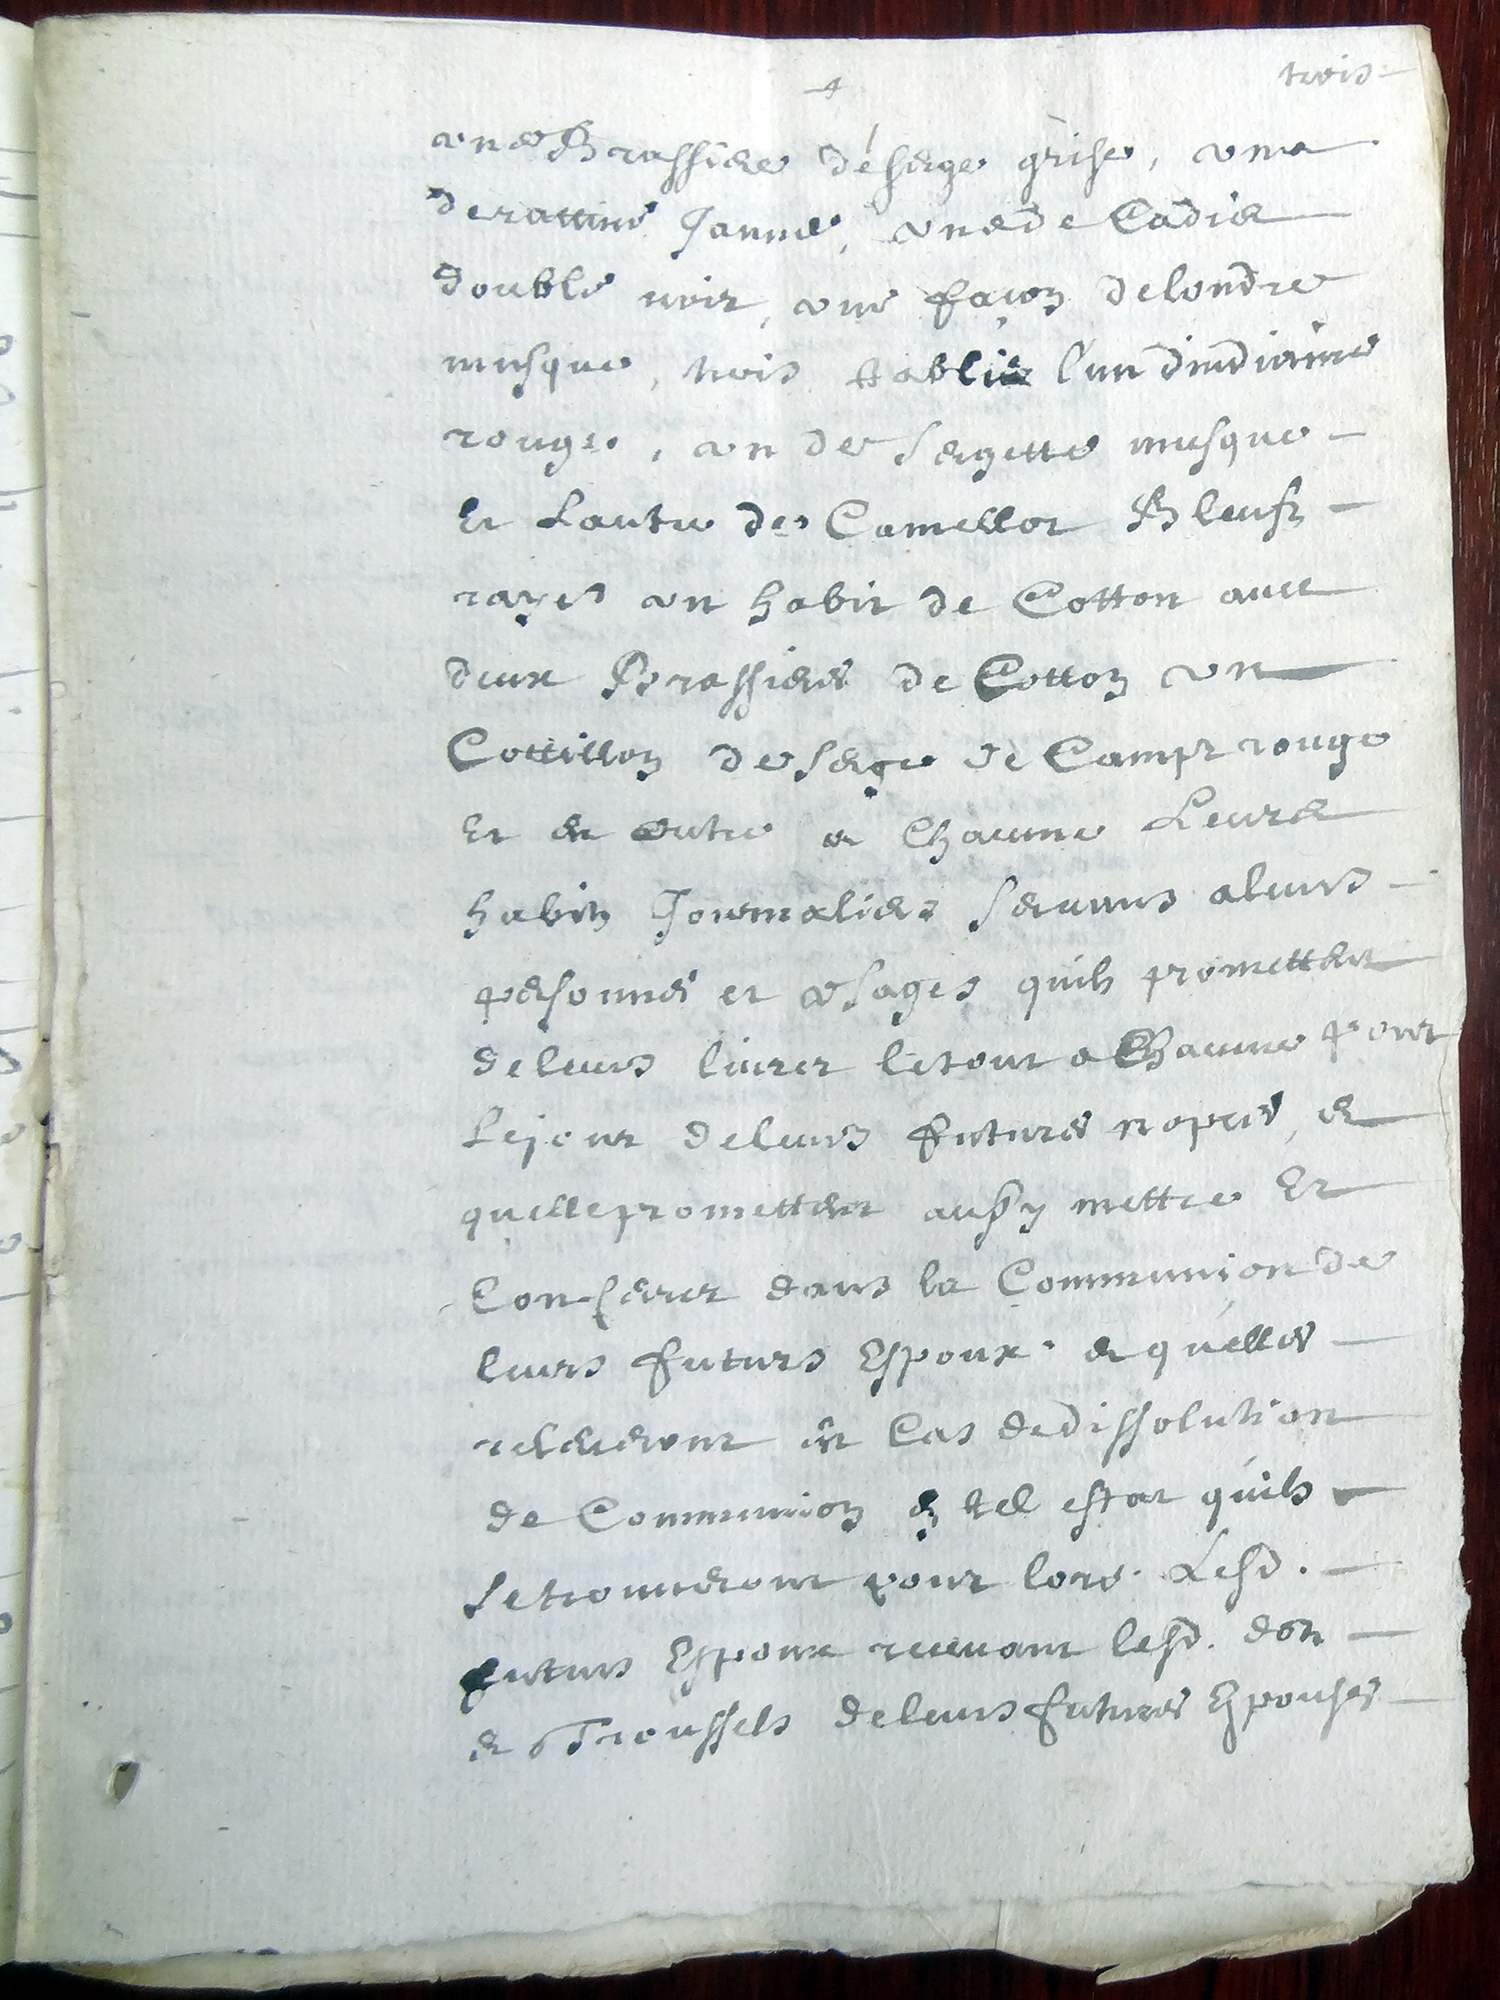 4 trois
une Brassiere dé serge grise, une
de rattine Jaune, une de Cadis
double noir, une façon de londre
musque, trois tablié l'un d'indienne
rouge, un de sergette musque
Et Lautre de Camellot Bleuf
rayes un habit de Cotton avec
deux Brassieres de Cotton un
Cottillon de serge de Camp rouge
Et en outre a Chacune Leurs
habits Journaliers servans a leurs
personnes et usages quils promettent
de leurs livrer le tout a Chacune pour
Le jour de leurs futures nopces, et
quelle promettent aussy mettre Et
Conferer dans la Communion de
leurs futurs Espoux. et quélles
releveront en Cas de dissolution
de Communion en tel estat quils
se trouveront pour lors. Lesd.
futurs Espoux recevant lesd. don
et Troussels de leurs futures Espouses